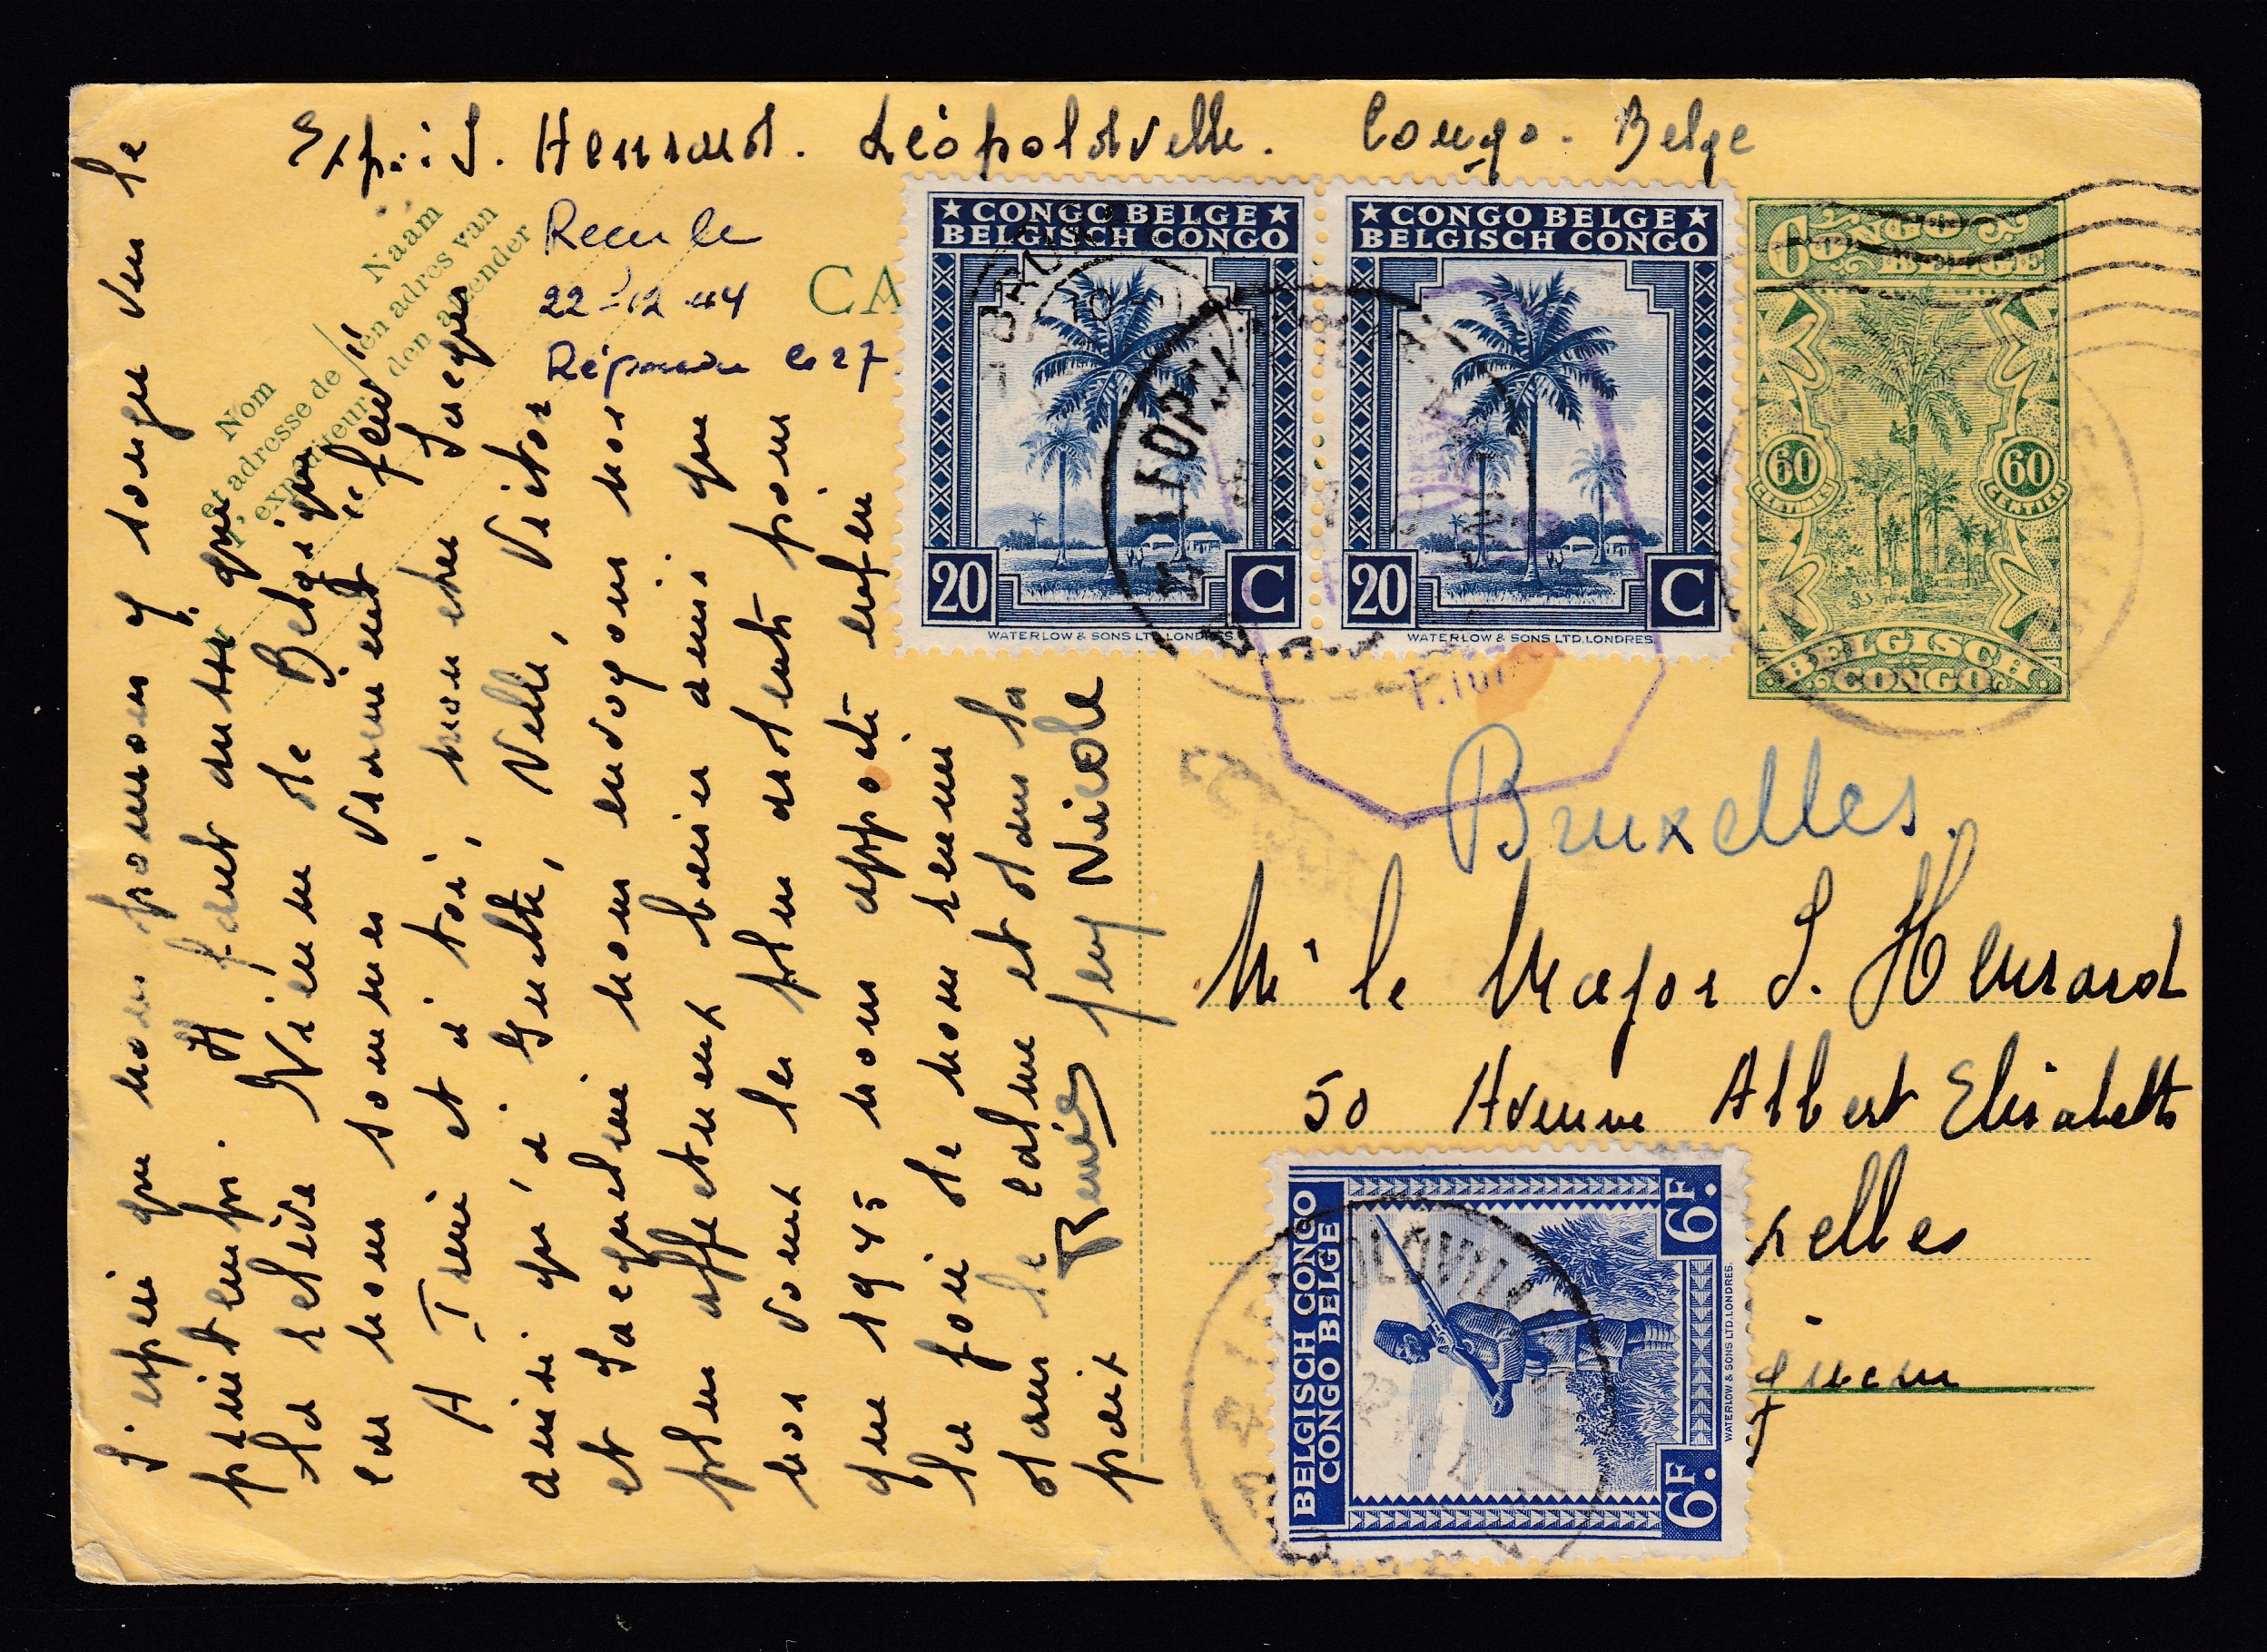 Exp: S. Henrard. Léopoldville. Congo-Belge
Reçu le
22-12-44
Répondu le 27
Nom
et adresse de
expéditeur
Naam
en adres van
den afzender
CA
★ CONGO BELGE ★
BELGISCH CONGO
20 C
WATERLOW & SONS LTD. LONDRES.
★ CONGO BELGE ★
BELGISCH CONGO
20 C
WATERLOW & SONS LTD. LONDRES.
60 CONGO
BELGE
60 CENTIMES
60 CENTIEM
BELGISCH
CONGO
Bruxelles.
Mr le Major S. Henrard
50 Avenue Albert Elisabeth
xelles
BELGISCH CONGO
CONGO BELGE
6F. 6F.
WATERLOW & SONS LTD. LONDRES.
LEOPOLDVILLE
J'espère que nous pourrons y songer vers le
printemps. Il faut autre que
la relève vienne de Belgique
car nous sommes vraiment "finis"
A Tini et à toi, mon cher Jacques
ainsi qu'à Guette, Nelle, Victor
et Jacqueline nous envoyons nos
plus affectueux baisers ainsi que
nos vœux les plus ardents pour
que 1945 nous apporte enfin
la joie de nous réunir
dans le calme et dans la
paix Renée Jeny Nicole